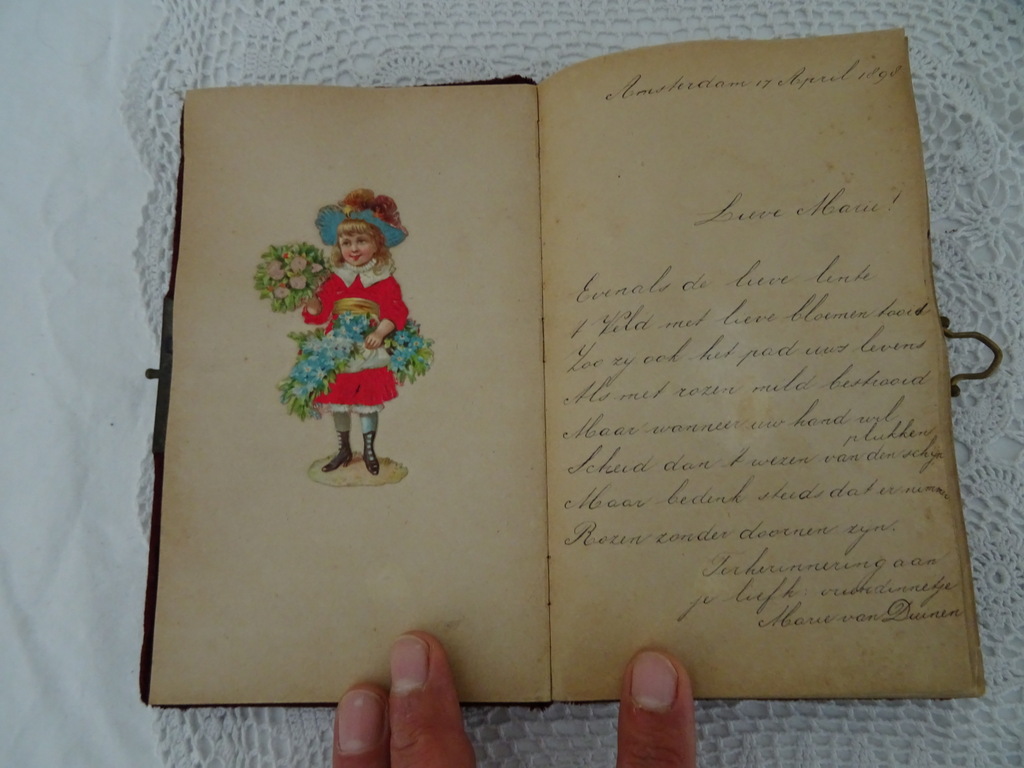 Amsterdam 17 April 1898
Lieve Marie!
Evenals de lieve lente
't Veld met lieve bloemen tooit
Zoo zy ook het pad uws levens
Als met rozen mild bestrooid
Maar wanneer uw hand wil
plukken
Scheid dan 't wezen van den schijn
Maar bedenk steeds dat er nimmer
Rozen zonder doornen zyn.
Ter herinnering aan
je liefh. vriendinnetje
Marie van Duinen